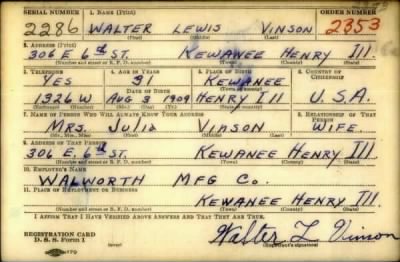 SERIAL NUMBER 1. NAME (Print) ORDER NUMBER
2286 WALTER LEWIS VINSON 2353
(First) (Middle) (Last)
2. ADDRESS (Print)
306 E 6th ST. KEWANEE HENRY Ill.
(Number and street or R. F. D. number) (Town) (County) (State)
3. TELEPHONE 4. AGE IN YEARS 5. PLACE OF BIRTH 6. COUNTRY OF CITIZENSHIP
YES 31 KEWANEE
DATE OF BIRTH (Town or county)
1326 W AUG 3 1909 HENRY Ill U.S.A.
(Exchange) (Number) (Mo.) (Day) (Yr.) (State or country)
7. NAME OF PERSON WHO WILL ALWAYS KNOW YOUR ADDRESS 8. RELATIONSHIP OF THAT PERSON
MRS. JULIA VINSON WIFE.
(Mr., Mrs., Miss) (First) (Middle) (Last)
9. ADDRESS OF THAT PERSON
306 E. 6th ST. KEWANEE HENRY Ill.
(Number and street or R. F. D. number) (Town) (County) (State)
10. EMPLOYER'S NAME
WALWORTH MFG Co.
11. PLACE OF EMPLOYMENT OR BUSINESS
KEWANEE HENRY Ill.
(Number and street or R. F. D. number) (Town) (County) (State)
I AFFIRM THAT I HAVE VERIFIED ABOVE ANSWERS AND THAT THEY ARE TRUE.
REGISTRATION CARD
D. S. S. Form 1
Walter L Vinson
(Registrant's signature)